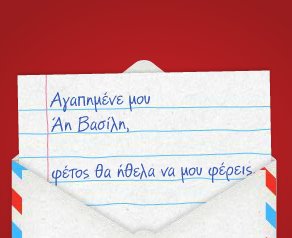 Αγαπημένε μου
Άη Βασίλη,
φέτος θα ήθελα να μου φέρεις